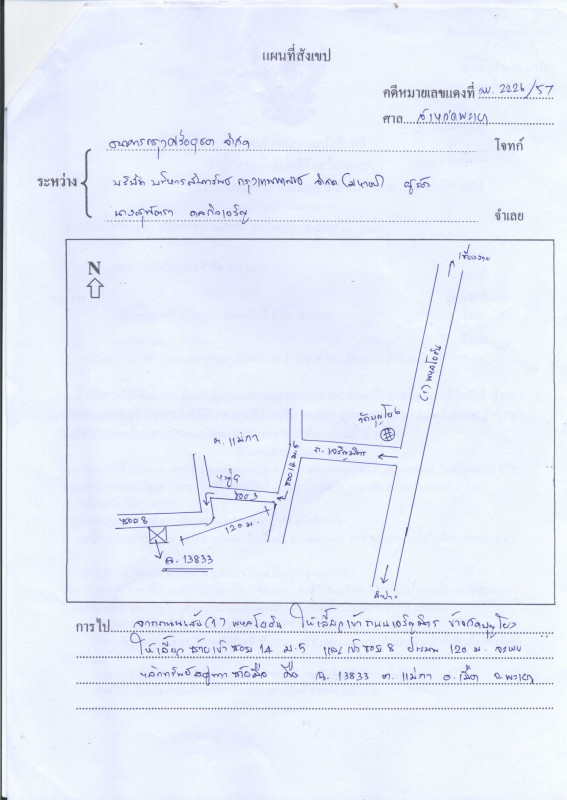 แผนที่สังเขป
คดีหมายเลขแดงที่ ผบ. 2226/57
ศาล จังหวัดพะเยา
ธนาคารกรุงศรีอยุธยา จำกัด โจทก์
ระหว่าง
บริษัท บริหารสินทรัพย์ กรุงเทพพาณิชย์ จำกัด (มหาชน) ผู้ร้อง
นางสุพัตรา จำเลย
N
เชียงราย
(1) พหลโยธิน
วัดบุญโยง
ต. แม่กา
ถ. เจริญมิตร
ซอย 14 ม.5
ซอย 3
ซอย 8
120 ม.
ฉ. 13833
ลำปาง
การไป จากถนนเส้น (1) พหลโยธิน ให้เลี้ยวเข้าถนนเจริญมิตร ข้างวัดบุญโยง
ให้เลี้ยวซ้ายเข้าซอย 14 ม.5 และเข้าซอย 8 ประมาณ 120 ม. จะพบ
หลักทรัพย์อยู่ทางซ้ายมือ คือ ฉ. 13833 ต. แม่กา อ. เมือง จ. พะเยา